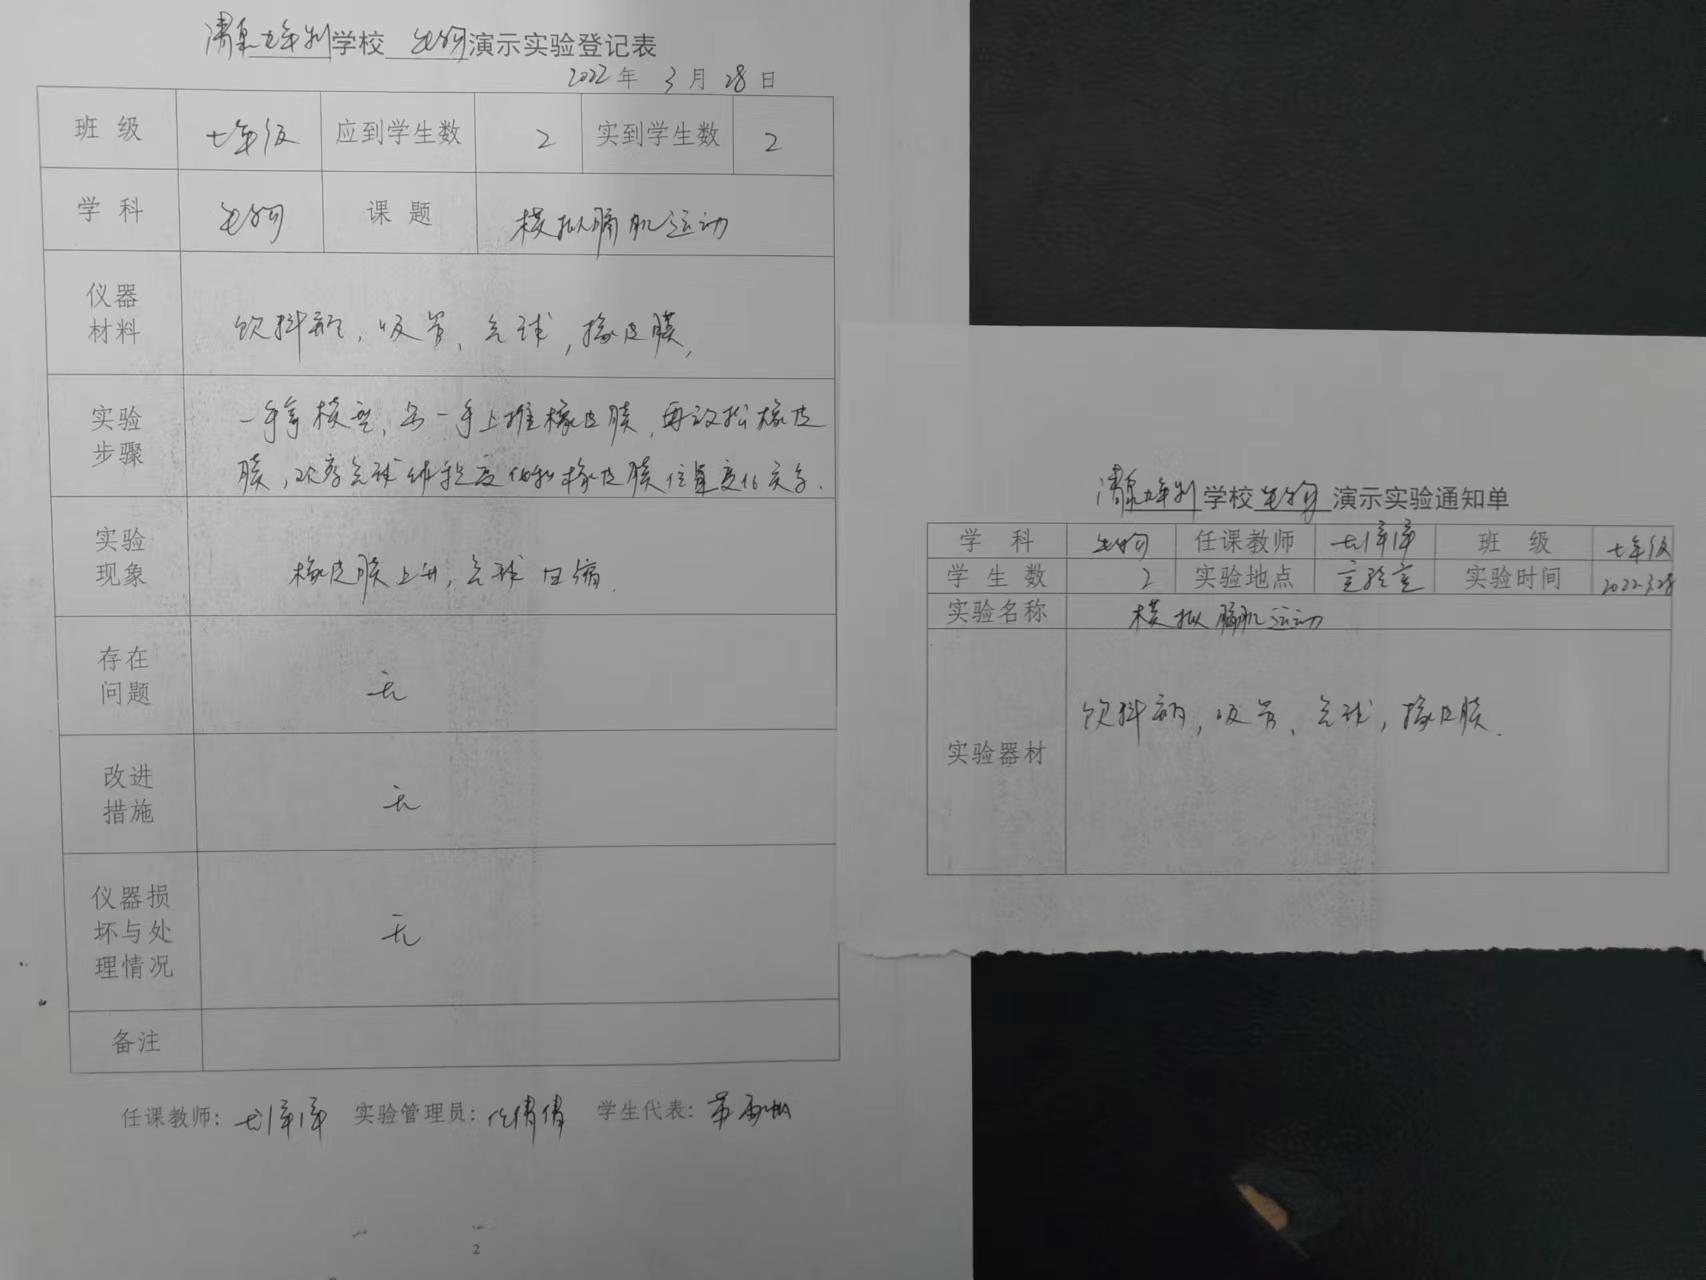 清泉九年制学校 生物演示实验登记表
2022年 3月28日
班级 七年级 应到学生数 2 实到学生数 2
学科 生物 课题 模拟膈肌运动
仪器
材料
饮料瓶,吸管、气球,橡皮膜,
实验
步骤
一手拿模型,另一手上推橡皮膜,再放松橡皮
膜,观察气球体积变化和橡皮膜位置变化关系.
实验
现象
橡皮膜上升,气球回缩.
存在
问题
无
改进
措施
无
仪器损
坏与处
理情况
无
备注
任课教师: 实验管理员: 倩倩 学生代表:
2
清泉九年制学校生物演示实验通知单
学科 生物 任课教师 班级 七年级
学生数 2 实验地点 实验室 实验时间 2022.3.28
实验名称 模拟膈肌运动
实验器材
饮料瓶,吸管、气球,橡皮膜.